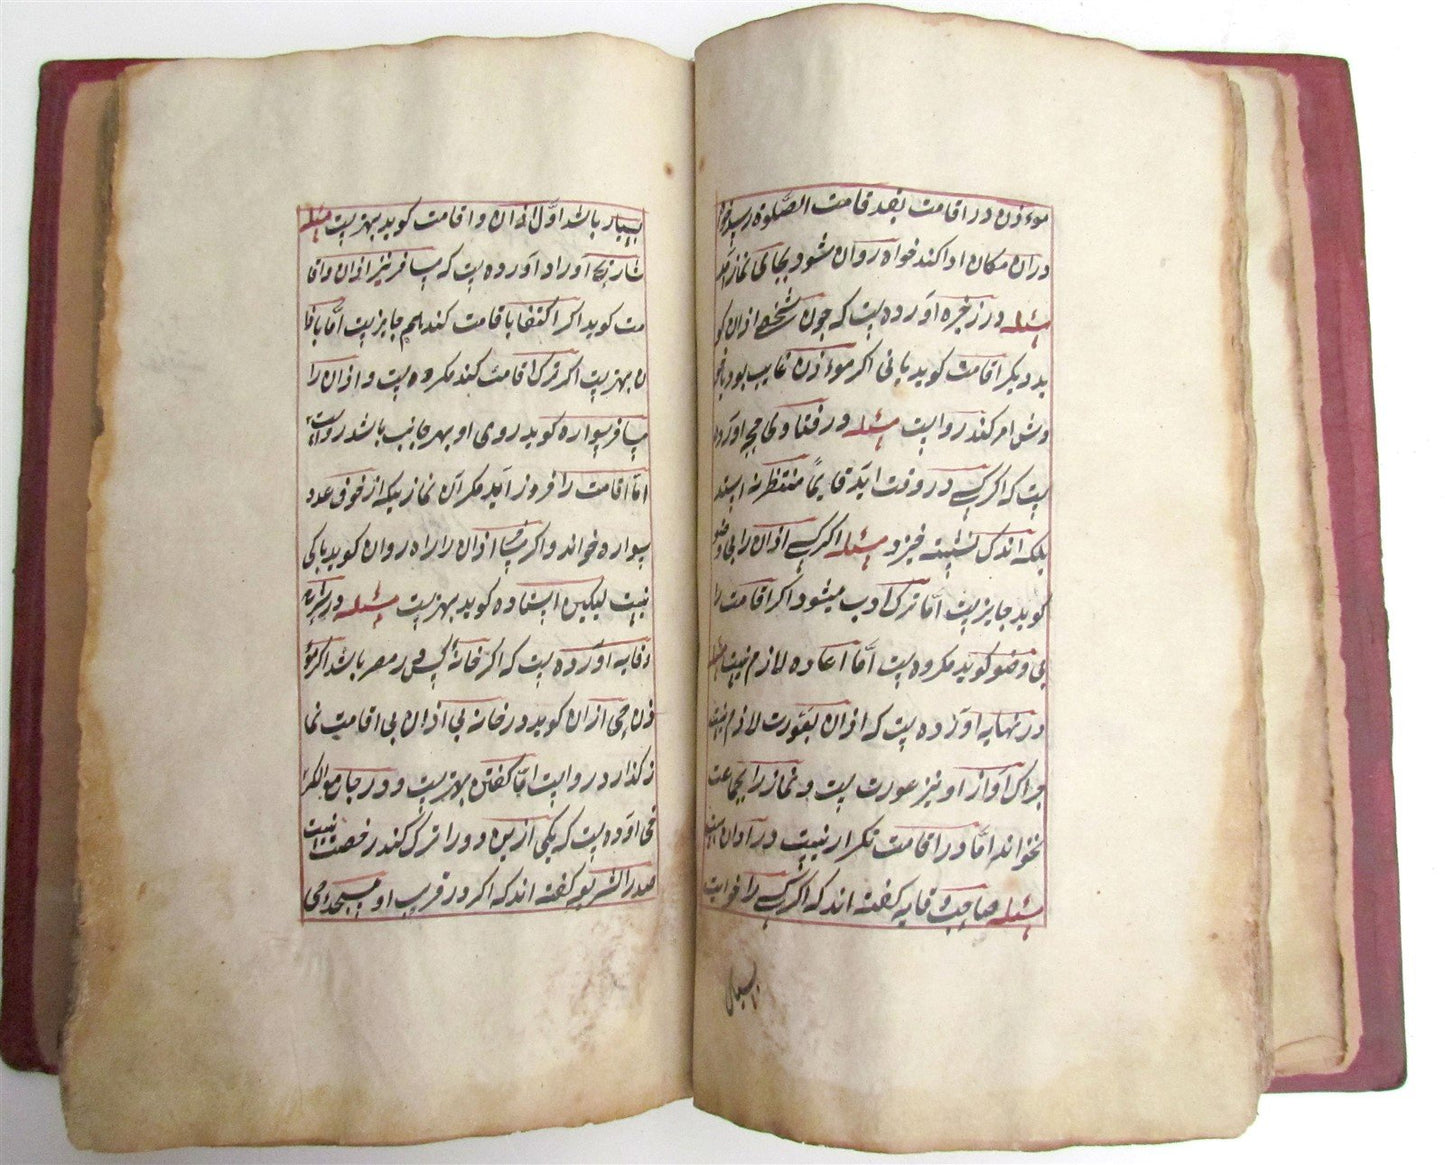 موءذن در اقامت بقد قامت الصّلوة رسید خواه
در ان مکان ادا کند خواه روان شود بجای نماز
مسئله در زخیره اورده است که چون شخصی اذان کو
ید دیکر اقامت کوید یانی اکر موءذن غایب بود یا خر
وش امر کند رواست مسئله در فتاوی حجه اورده
است که اکر کسی در وقت اید قایماً منتظر نه ایستد
بلکه اندک نشیند خیزد مسئله اکر کسی اذان را بی وضو
کوید جایز است امّا ترک ادب میشود اکر اقامت را
بی وضو کوید مکروه است امّا اعاده لازم نیست مسئله
در نهایه اورده است که اذان بعورت لازم نیست
چراکه اواز او نیز عورت است و نماز را بجماعت
نخوانند امّا در اقامت تکرار نیست در اذان است
مسئله صاحب وقایه کفته اند که اکر کسی را فوایت
بسیار
بسیار باشد اوّل اذان و اقامت کوید بهتر است مسئله
شارح اوراد اورده است که مسافر نیز اذان و اقا
مت کوید اکر اکتفا باقامت کند هم جایز است امّا با اذا
ن بهتر است اکر ترک اقامت کند مکروه است و اذان را
مسافر سواره کوید روی او بهر جانب باشد رواست
امّا اقامت را فروز آید مکر آن نمازیکه از خوف عدو
سواره خواند و اکر مسافر اذان را راه روان کوید باکی
نیست لیکن ایستاده کوید بهتر است مسئله در شرح
وقایه اورده است که اکر خانهٔ کسی در مصر باشد اکر مو
ذن حی اذان کوید در خانه بی اذان بی اقامت نما
ز کذارد رواست امّا کفتن بهتر است و در جامع الکر
خی اورده است که یکی از این دو را ترک کند رخصت نیست
صدر الشریعه کفته اند که اکر در قریه او مسجد حی